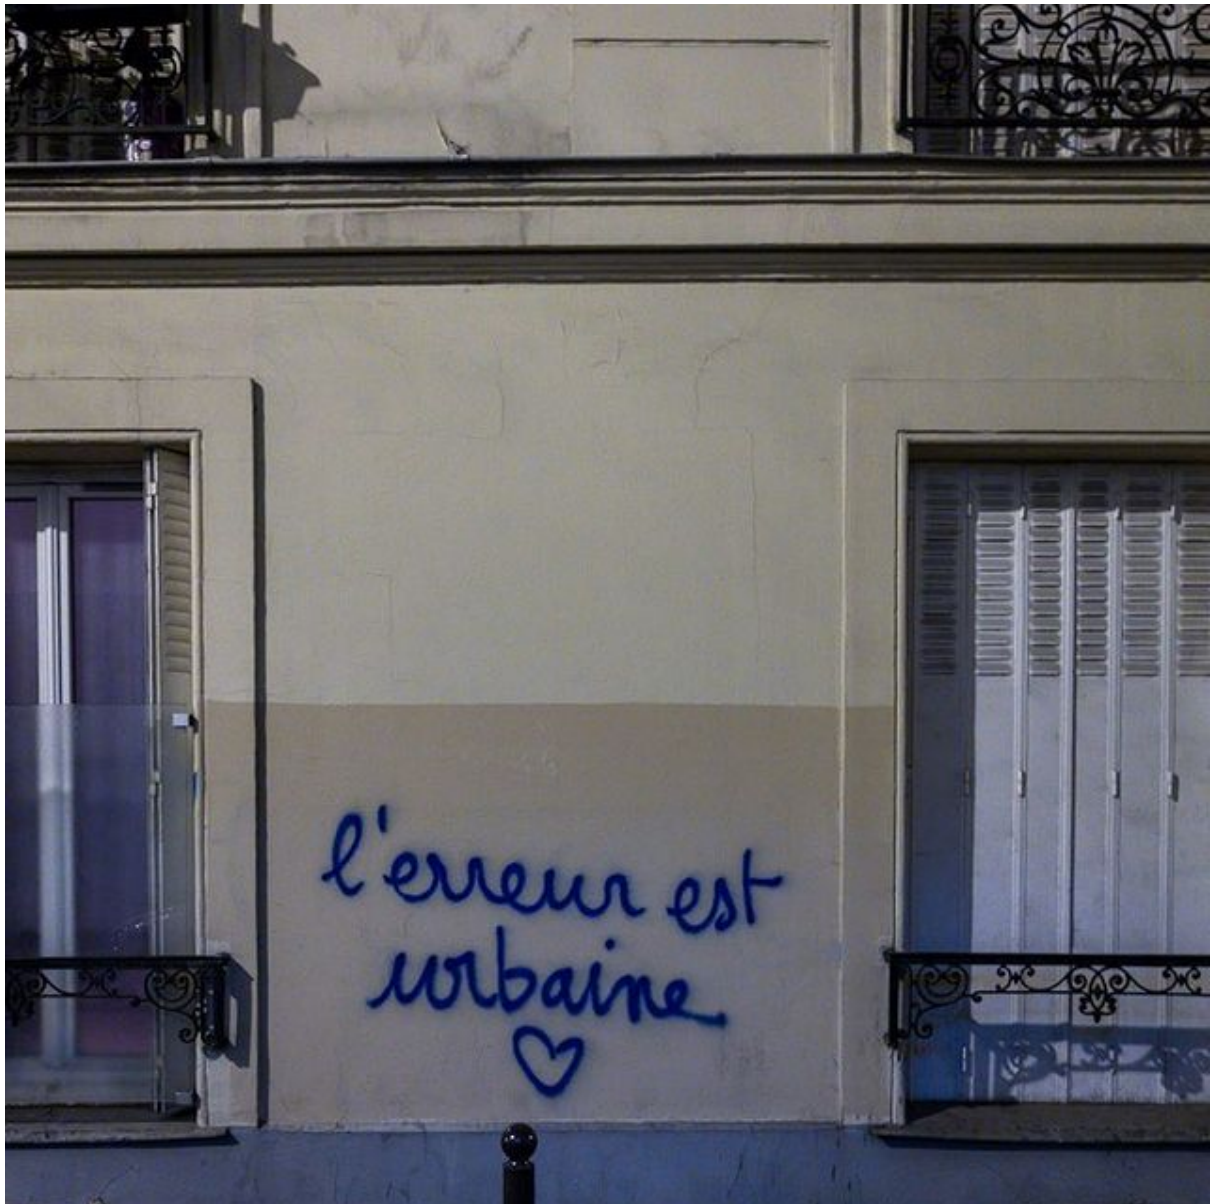 l'erreur est
urbaine